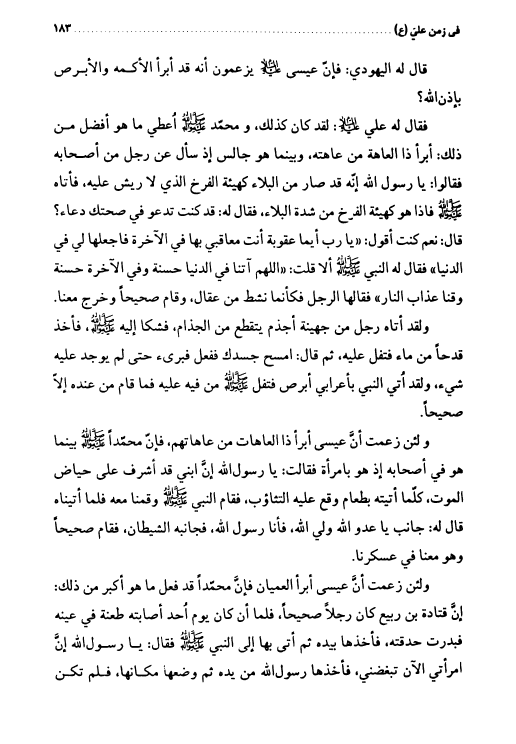 في زمن علي (ع) ........................................ ١٨٣
قال له اليهودي: فإنّ عيسى عليه السلام يزعمون أنه قد أبرأ الأكمه والأبـرص
بإذن‌الله؟
فقال له علي عليه السلام: لقد كان كذلك، و محمّد ﷺ اُعطي ما هو أفضل مـن
ذلك: أبرأ ذا العاهة من عاهته، وبينما هو جالس إذ سأل عن رجل من أصـحابه
فقالوا: يا رسول الله إنّه قد صار من البلاء كهيئة الفرخ الذي لا ريش عليه، فأتاه
ﷺ فاذا هو كهيئة الفرخ من شدة البلاء، فقال له: قد كنت تدعو في صحتك دعاء؟
قال: نعم كنت أقول: «يا رب أيما عقوبة أنت معاقبي بها في الآخرة فاجعلها لي في
الدنيا» فقال له النبي ﷺ ألا قلت: «اللهم آتنا في الدنيا حسنة وفي الآخرة حسنة
وقنا عذاب النار» فقالها الرجل فكأنما نشط من عقال، وقام صحيحاً وخرج معنا.
ولقد أتاه رجل من جهينة أجذم يتقطع من الجذام، فشكا إليه ﷺ، فأخذ
قدحاً من ماء فتفل عليه، ثم قال: امسح جسدك ففعل فبرىء حتى لم يوجد عليه
شيء، ولقد اُتي النبي بأعرابي أبرص فتفل ﷺ من فيه عليه فما قام من عنده إلاّ
صحيحاً.
و لئن زعمت أنَّ عيسى أبرأ ذا العاهات من عاهاتهم، فإنّ محمّداً ﷺ بينما
هو في أصحابه إذ هو بامرأة فقالت: يا رسول‌الله إنَّ ابني قد أشرف على حياض
الموت، كلّما أتيته بطعام وقع عليه التثاؤب، فقام النبي ﷺ وقمنا معه فلما أتيناه
قال له: جانب يا عدو الله ولي الله، فأنا رسول الله، فجانبه الشيطان، فقام صحيحاً
وهو معنا في عسكرنا.
ولئن زعمت أنَّ عيسى أبرأ العميان فإنَّ محمّداً قد فعل ما هو أكبر من ذلك:
إنَّ قتادة بن ربيع كان رجلاً صحيحاً، فلما أن كان يوم اُحد أصابته طعنة في عينه
فبدرت حدقته، فأخذها بيده ثم أتى بها إلى النبي ﷺ فقال: يـا رسـول‌الله إنَّ
امرأتي الآن تبغضني، فأخذها رسول‌الله من يده ثم وضعها مكـانها، فـلم تكـن